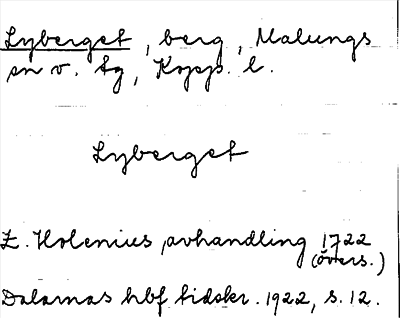 Lyberget, berg, Malungs
sn v. tg, Kopp. l.
Lyberget
Z. Holenius, avhandling 1722
(övers.)
Dalarnas hbf tidskr. 1922, s. 12.